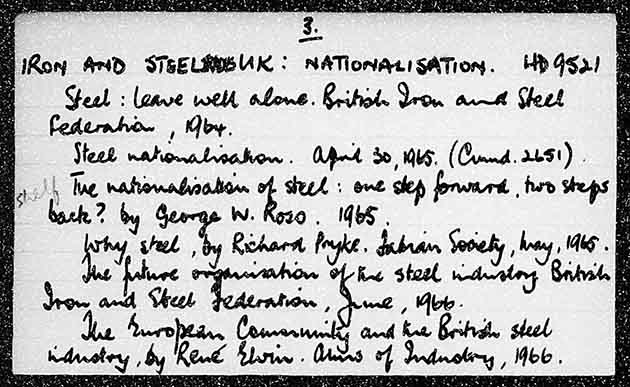 3.
IRON AND STEEL UK: NATIONALISATION. HD 9521
Steel: leave well alone. British Iron and Steel
Federation, 1964.
Steel nationalisation. April 30, 1965. (Cmnd. 2651).
shelf The nationalisation of steel: one step forward, two steps
back? by George W. Ross. 1965.
Why steel, by Richard Pryke. Fabian Society, May, 1965.
The future organisation of the steel industry British
Iron and Steel Federation, June, 1966.
The European Community and the British steel
industry, by René Elvin. Aims of Industry, 1966.